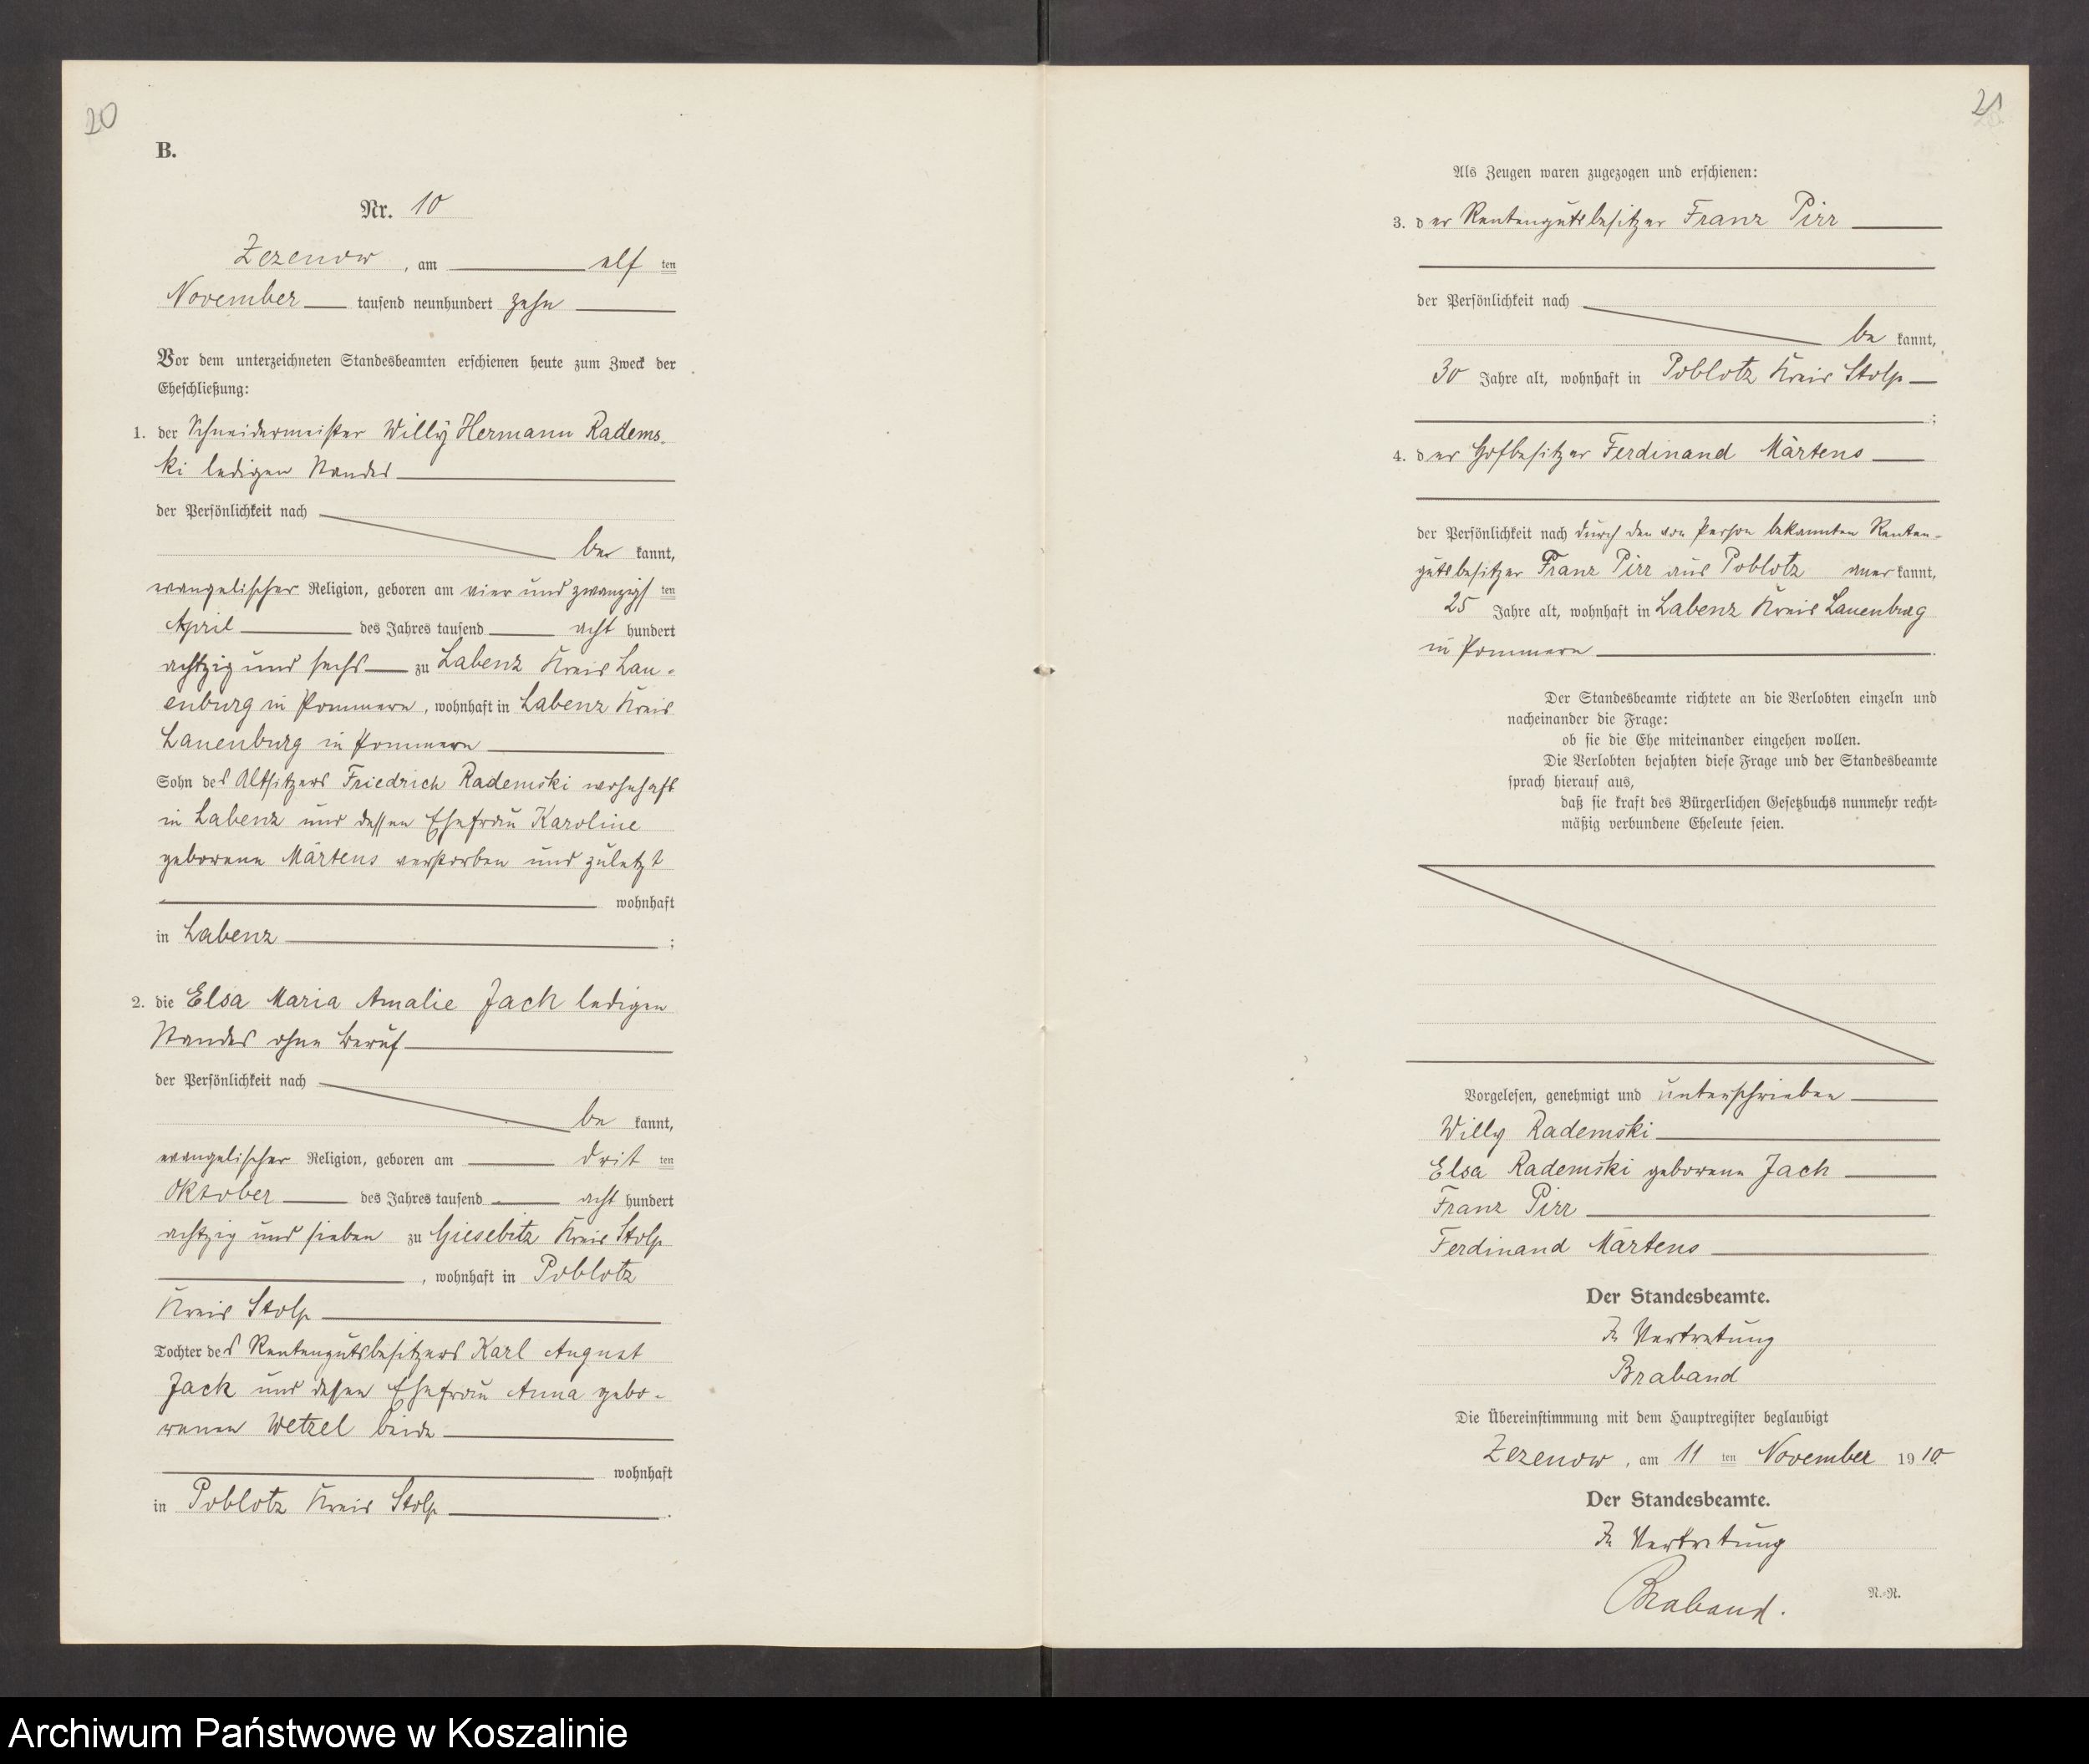 20
B.
Nr. 10
Zezenow, am elf ten
November tausend neunhundert zehn
Vor dem unterzeichneten Standesbeamten erschienen heute zum Zweck der
Eheschließung:
1. der Schneidermeister Willy Hermann Radems-
ki ledigen Standes
der Persönlichkeit nach
be kannt,
evangelischer Religion, geboren am vier und zwanzigs ten
April des Jahres tausend acht hundert
achtzig und sechs zu Labenz Kreis Lau-
enburg in Pommern, wohnhaft in Labenz Kreis
Lauenburg in Pommern
Sohn des Altsitzers Friedrich Rademski wohnhaft
in Labenz und dessen Ehefrau Karoline
geborene Märtens verstorben und zuletzt
wohnhaft
in Labenz ;
2. die Elsa Maria Amalie Jach ledigen
Standes ohne Beruf
der Persönlichkeit nach
be kannt,
evangelischer Religion, geboren am drit ten
Oktober des Jahres tausend acht hundert
achtzig und sieben zu Giesebitz Kreis Stolp
, wohnhaft in Poblotz
Kreis Stolp
Tochter des Rentengutsbesitzers Karl August
Jack und dessen Ehefrau Anna gebo-
renen Wetzel beide
wohnhaft
in Poblotz Kreis Stolp .
21
Als Zeugen waren zugezogen und erschienen:
3. der Rentengutsbesitzer Franz Pirr
der Persönlichkeit nach
be kannt,
30 Jahre alt, wohnhaft in Poblotz Kreis Stolp
;
4. der Hofbesitzer Ferdinand Märtens
der Persönlichkeit nach durch den von Person bekannten Renten-
gutsbesitzer Franz Pirr aus Poblotz aner kannt,
25 Jahre alt, wohnhaft in Labenz Kreis Lauenburg
in Pommern .
Der Standesbeamte richtete an die Verlobten einzeln und
nacheinander die Frage:
ob sie die Ehe miteinander eingehen wollen.
Die Verlobten bejahten diese Frage und der Standesbeamte
sprach hierauf aus,
daß sie kraft des Bürgerlichen Gesetzbuchs nunmehr recht-
mäßig verbundene Eheleute seien.
Vorgelesen, genehmigt und unterschrieben
Willy Rademski
Elsa Rademski geborene Jach
Franz Pirr
Ferdinand Märtens
Der Standesbeamte.
In Vertretung
Braband
Die Übereinstimmung mit dem Hauptregister beglaubigt
Zezenow, am 11 ten November 1910.
Der Standesbeamte.
In Vertretung
Braband.
N.-R.
Archiwum Państwowe w Koszalinie